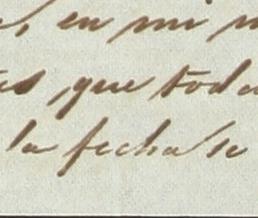 , en mi
, que toda
la fecha se